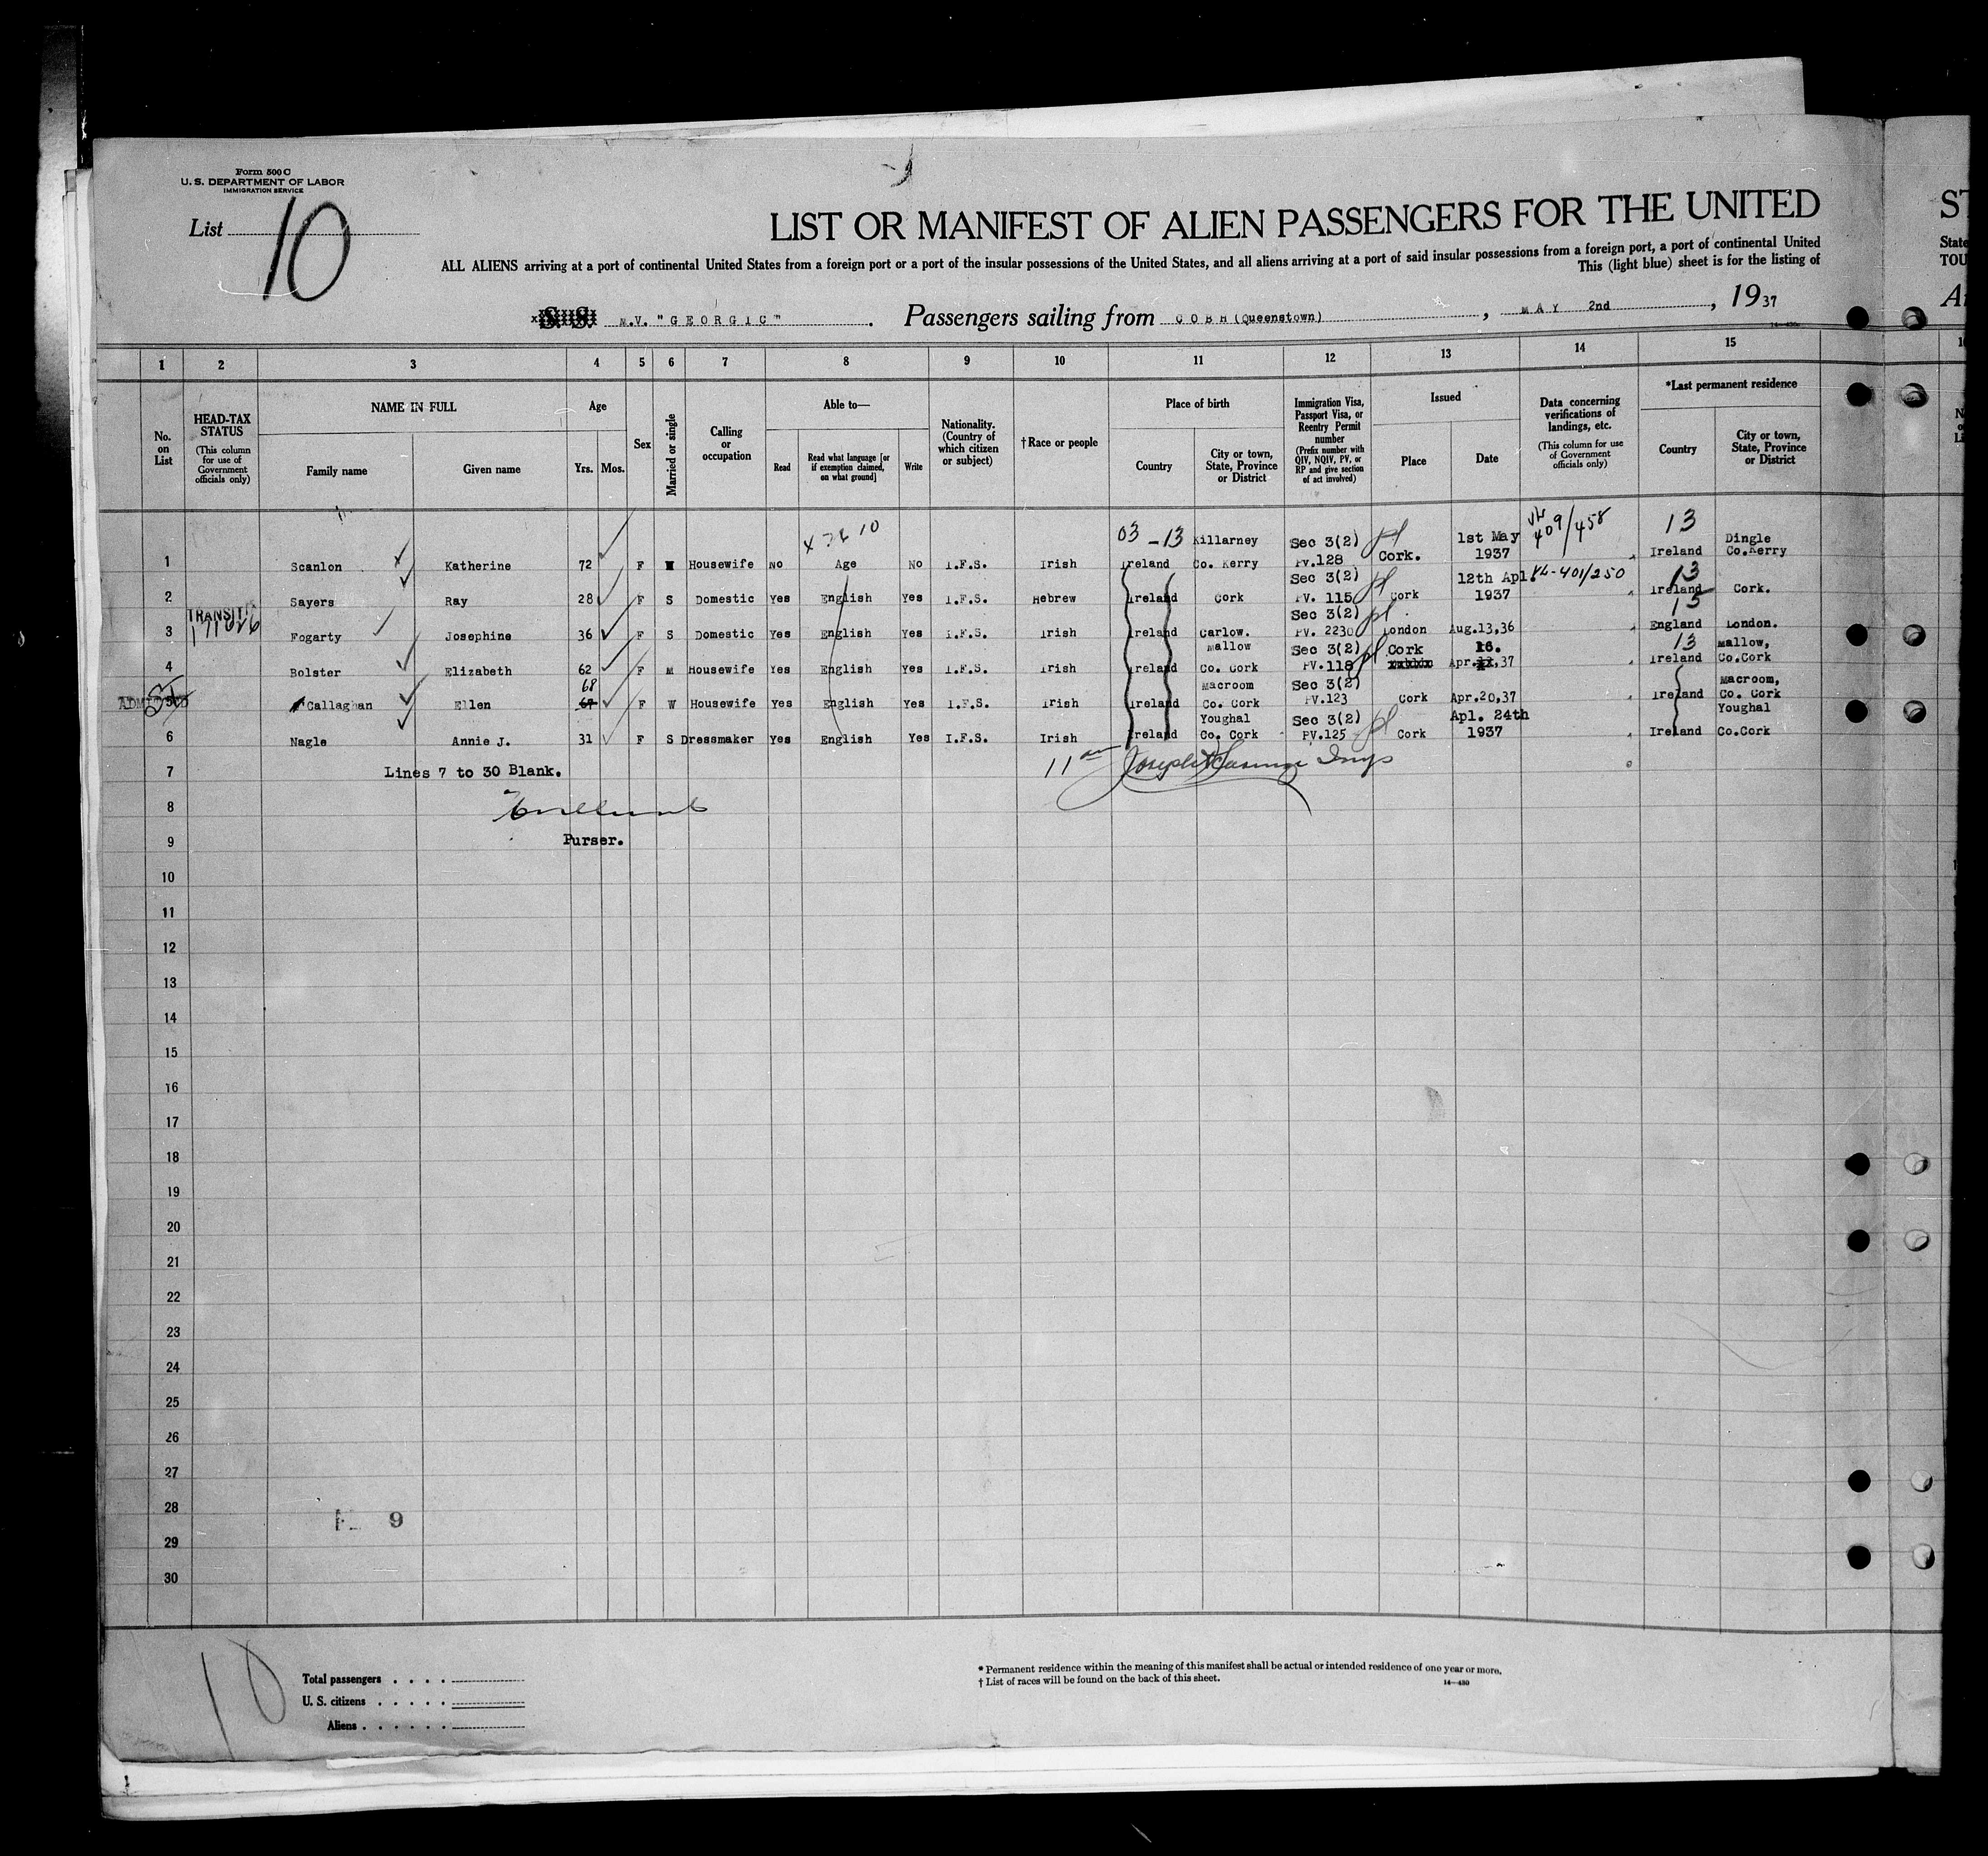 Form 500 C
U. S. DEPARTMENT OF LABOR
IMMIGRATION SERVICE
List 10
LIST OR MANIFEST OF ALIEN PASSENGERS FOR THE UNITED
ST
ALL ALIENS arriving at a port of continental United States from a foreign port or a port of the insular possessions of the United States, and all aliens arriving at a port of said insular possessions from a foreign port, a port of continental United
State
This (light blue) sheet is for the listing of
TOU
S. S. M.V. "GEORGIC". Passengers sailing from COBH (Queenstown), MAY 2nd, 1937
1 2 3 4 5 6 7 8 9 10 11 12 13 14 15
No. on List
HEAD-TAX STATUS (This column for use of Government officials only)
NAME IN FULL
Family name Given name
Age
Yrs. Mos.
Sex
Married or single
Calling or occupation
Able to—
Read
Read what language [or if exemption claimed, on what ground]
Write
Nationality. (Country of which citizen or subject)
†Race or people
Place of birth
Country
City or town, State, Province or District
Immigration Visa, Passport Visa, or Reentry Permit number (Prefix number with QIV, NQIV, PV, or RP and give section of act involved)
Issued
Place Date
Data concerning verifications of landings, etc. (This column for use of Government officials only)
*Last permanent residence
Country
City or town, State, Province or District
03-13 409/458 13
1 Scanlon Katherine 72 F Housewife No Age No I.F.S. Irish Ireland Killarney Co. Kerry Sec 3(2) PV.128 Cork. 1st May 1937 Ireland Dingle Co.Kerry
2 Sayers Ray 28 F S Domestic Yes English Yes I.F.S. Hebrew Ireland Cork Sec 3(2) PV. 115 Cork 12th Apl 1937 84-401/250 13 Ireland Cork.
TRANSIT
171626
3 Fogarty Josephine 36 F S Domestic Yes English Yes I.F.S. Irish Ireland Carlow. Sec 3(2) PV. 2230 London Aug.13,36 15 England London.
4 Bolster Elizabeth 62 F M Housewife Yes English Yes I.F.S. Irish Ireland Mallow Co. Cork Sec 3(2) PV.118 Cork Apr. 16. ,37 13 Ireland Mallow, Co.Cork
5 Callaghan Ellen 68 67 F W Housewife Yes English Yes I.F.S. Irish Ireland Macroom Co. Cork Sec 3(2) PV.123 Cork Apr.20,37 Ireland Macroom, Co. Cork
6 Nagle Annie J. 31 F S Dressmaker Yes English Yes I.F.S. Irish Ireland Youghal Co. Cork Sec 3(2) PV.125 Cork Apl. 24th 1937 Ireland Youghal Co.Cork
7 Lines 7 to 30 Blank.
8
9 Purser.
10
11
12
13
14
15
16
17
18
19
20
21
22
23
24
25
26
27
28
9
29
30
10
Total passengers
U. S. citizens
Aliens
* Permanent residence within the meaning of this manifest shall be actual or intended residence of one year or more.
† List of races will be found on the back of this sheet.
14—430